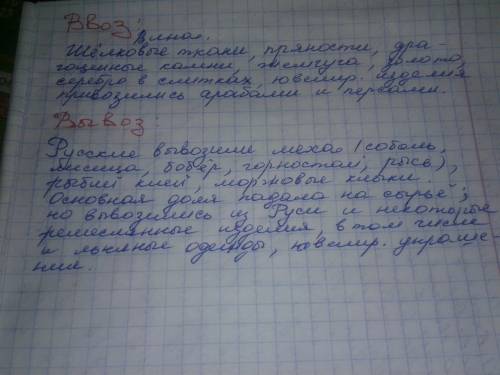 Ввоз:
Вина.
Шёлковые ткани, пряности, дра-
гоценные камни, жемчуга, золото,
серебро в слитках, ювелир. изделия
привозились арабами и персами.
Вывоз:
Русские вывозили меха (соболь,
лисица, бобёр, горностай, рысь),
рыбий клей, моржовые клыки.
Основная доля падала на сырьё;
но вывозились из Руси и некоторые
ремесленные изделия, в том числе
и льняные одежды, ювелир. украше-
ния.